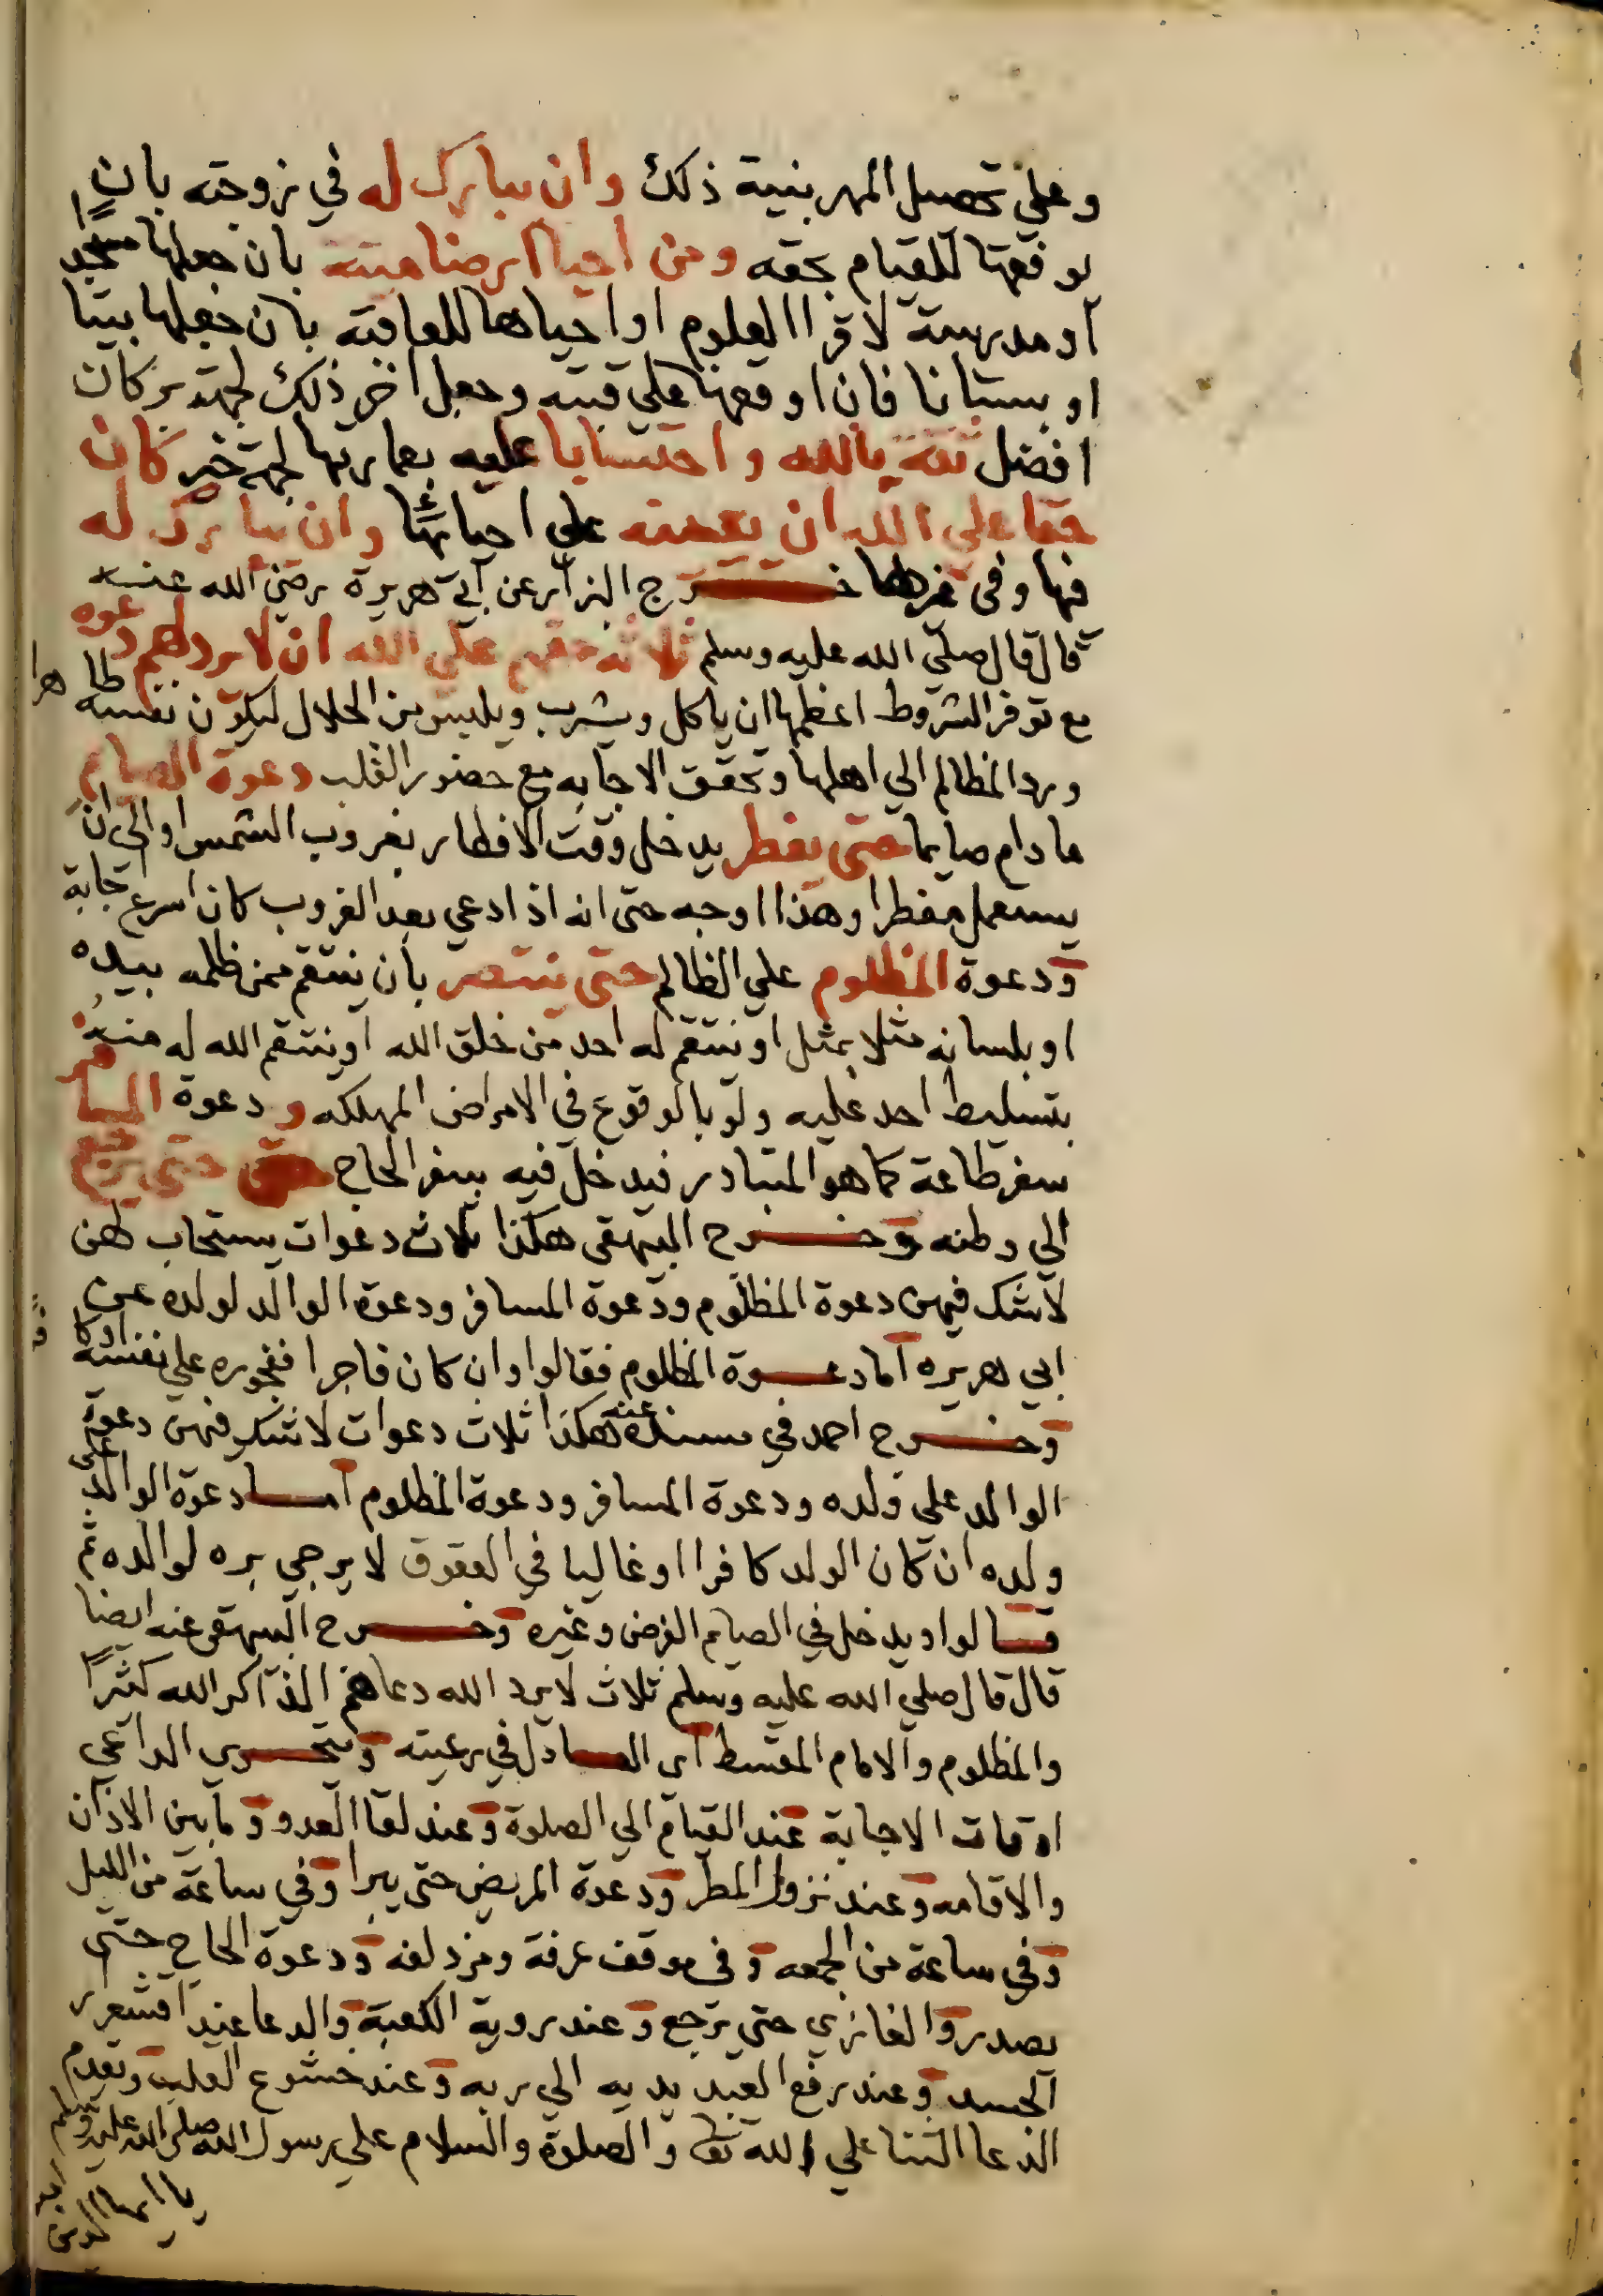 وعلي تحصيل المهر بنية ذلك وان يبارك له في زوجته بان
يوفقها للقيام بحقه ومن احيا ارضا ميتة بان جعلها مسجدًا
او مدرسة لاقرا العلوم او احياها للعاقبه بان جعلها بيتا
او بستانا فان اوقفها علي وجعل اخر ذلك لجهة بر كان
افضل ثقة بالله واحتسابا عليه بعمارتها لجهة خير كان
حقا علي الله ان يعينه علي احيائها وان يبارك له
فيها وفي خرج البزار عن ابي هريرة رضي الله عنه
قال قال صلي الله عليه وسلم ثلاثة حقهم علي الله ان لا يرد لهم دعوه
مع توفر الشروط اعظمها ان ياكل ويشرب ويلبس من الحلال ليكون نفسه طاهرا
ورد المظالم الي اهلها وتحقق الاجابه مع حضور القلب دعوة الصايم
ما دام صايما حتي يفطر يدخل وقت الافطار بغروب الشمس او الي ان
يستعمل مفطرا وهذا اوجه حتي انه اذا دعي بعد الغروب كان اسرع اجابة
ودعوة المظلوم علي الظالم حتي ينتصر بان ينتقم ممن ظلمه بيده
او بلسانه مثلا بمثل او ينتقم له احد من خلق الله او ينتقم الله له منه
بتسليط احد عليه ولو بالوقوع في الامراض المهلكه و دعوة المسافر
سفر طاعة كما هو المتبادر فيدخل فيه سفر الحاج حتي يرجع
الي وطنه وخرج البيهقي هكذا ثلاث دعوات يستجاب لهن
لا شك فيهن دعوة المظلوم ودعوة المسافر ودعوة الوالد لولده عن
ابي هريره اما دعوة المظلوم فقالوا وان كان فاجرا ففجوره علي نفسه او كافرًا
وخرج احمد في مسنده عنه هكذا ثلاث دعوات لا شك فيهن دعوة
الوالد علي ولده ودعوة المسافر ودعوة المظلوم اما دعوة الوالد علي
ولده ان كان الولد كافرا او غاليا في العقوق لا يرجي بره لوالده ثم
قالوا ويدخل في الصايم الفرض وغيره وخرج البيهقي عنه ايضا
قال قال صلي الله عليه وسلم ثلاث لا يرد الله دعاهم الذاكر الله كثيرًا
والمظلوم والامام المقسط اي العادل في رعيته ويتحري الداعي
اوقات الاجابة عند القيام الي الصلوة وعند لقا العدو وما بين الاذان
والاقامه وعند نزول المطر ودعوة المريض حتي يبرا وفي ساعة من الليل
وفي ساعة من الجمعه وفي موقف عرفة ومزدلفه ودعوة الحاج حتي
يصدر والغازي حتي يرجع وعند روية الكعبة والدعا عند اقشعرار
الجسد وعند رفع العبد يديه الي ربه وعند خشوع القلب ويقدم
الدعا الثنا علي الله تعا والصلوة والسلام علي رسول الله صلي الله عليه وسلم
يا ايها الذين